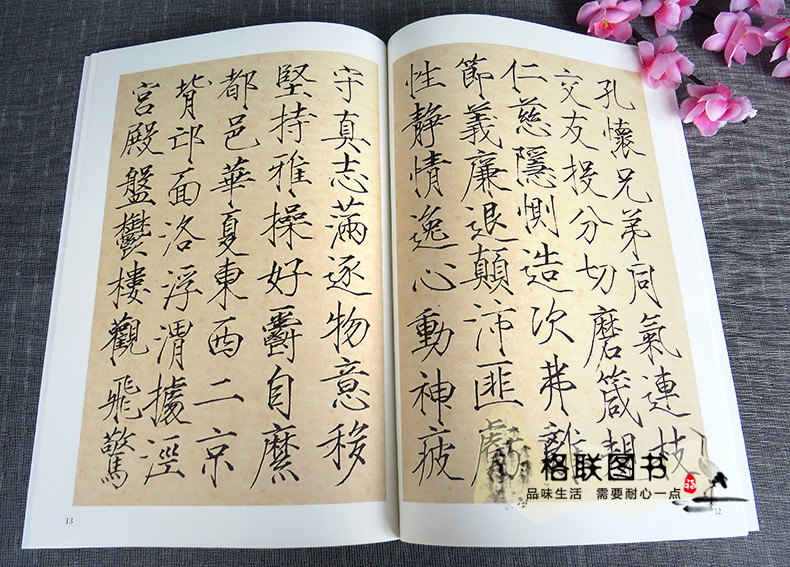 孔懷兄弟同氣連枝
交友投分切磨箴規
仁慈隱惻造次弗離
節義廉退顛沛匪虧
性靜情逸心動神疲
守真志滿逐物意移
堅持雅操好爵自縻
都邑華夏東西二京
背邙面洛浮渭據涇
宮殿盤鬱樓觀飛驚
格联图书
品味生活 需要耐心一点
13
12